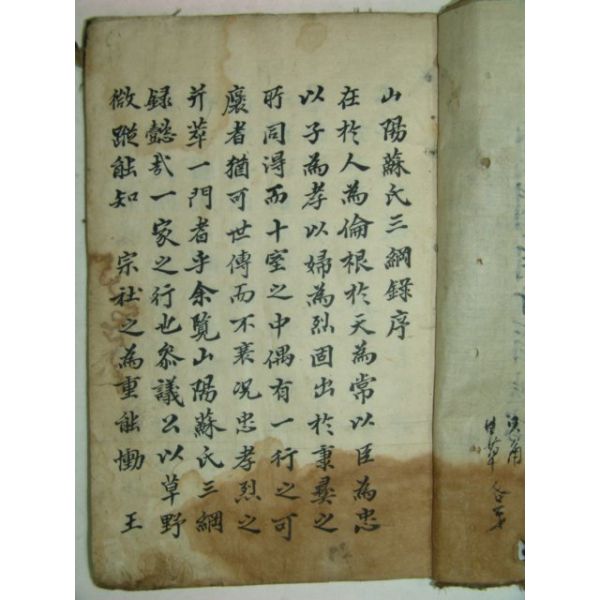 山陽蘇氏三綱錄序
在於人為倫根於天為常以臣為忠
以子為孝以婦為烈固出於秉彛之
所同得而十室之中偶有一行之可
褒者猶可世傳而不衰况忠孝烈之
并萃一門者乎余覽山陽蘇氏三綱
録懿㢤一家之行也叅議公以草野
微蹤能知 宗社之為重能慟 王